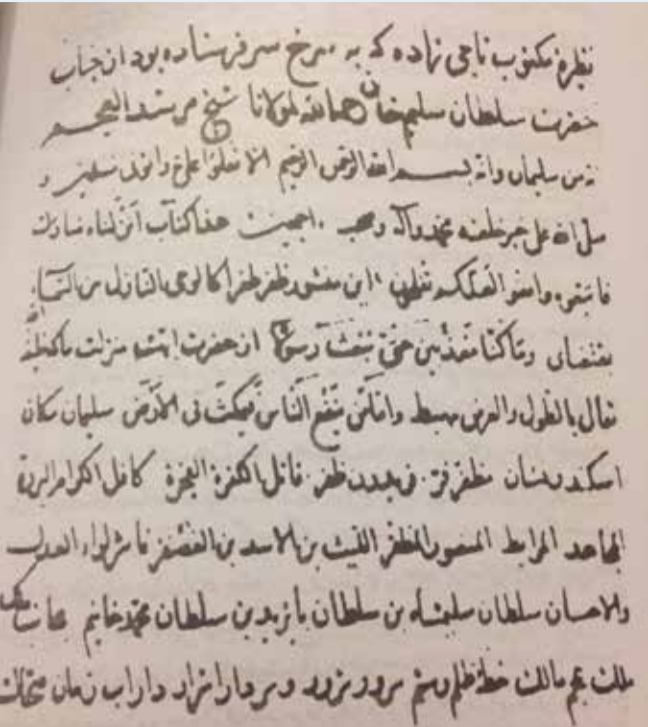 نظیرهٔ مکتوب تاجی زاده که به سرخ سر فرستاده بود از جناب
حضرت سلطان سلیم خان علامه مولانا شیخ مرشد العجم
من سلیمان وانه بسم الله الرحمن الرحیم الا تعلوا علی واتونی مسلمین و
صلی الله علی خیر خلقه محمد وآله وصحبه اجمعین هذا کتاب انزلناه مبارک
فاتبعوه واتقوا لعلکم این منشور ظفر طغرا کالوحی النازل من السماء
بمقتضای وما کنا معذبین حتی نبعث رسولا از حضرت منزلت ما
بالطول والعرض مهبط واما ما ینفع الناس فیمکث فی الارض سلیمان مکان
اسکندر نشان مظفر فر فریدون ظفر قاتل الکفرة الفجرة کافل الکرام البررة
المجاهد المرابط المنصور المظفر اللیث بن الاسد بن الغضنفر ناشر لواء العدل
والاحسان سلطان سلیمشاه بن سلطان بایزید بن سلطان محمد خانیم بجانب
ملک عجم مالک خطهٔ ظلم وستم سرور شرور وسردار اشرار داراب زمان ضحاک